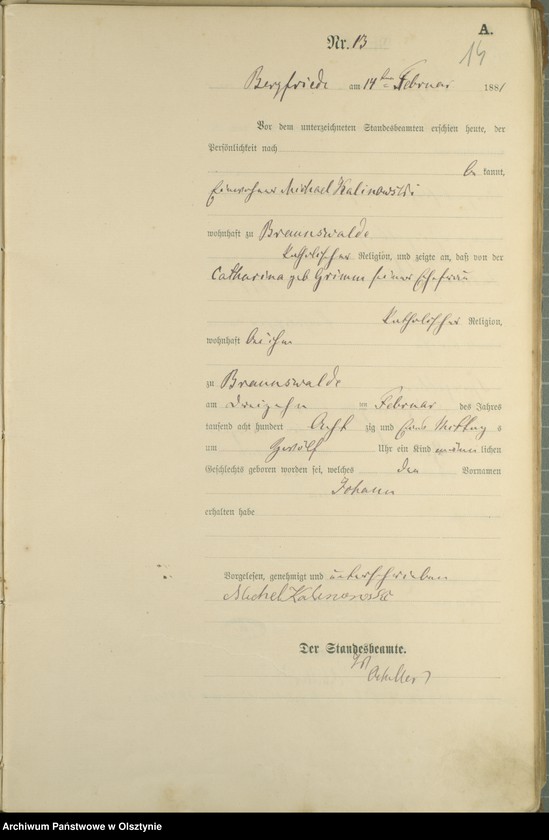 A.
Nr. 13
14
Bergfriede am 14ten Februar 1881
Vor dem unterzeichneten Standesbeamten erschien heute, der
Persönlichkeit nach
be kannt,
Einwohner Michael Kalinowski
wohnhaft zu Braunswalde
katholischer Religion, und zeigte an, daß von der
Catharina geb Grimm seiner Ehefrau
katholischer Religion,
wohnhaft bei ihm
zu Braunswalde
am dreizehn ten Februar des Jahres
tausend acht hundert Acht zig und eins Mittag s
um zwölf Uhr ein Kind männ lichen
Geschlechts geboren worden sei, welches den Vornamen
Johann
erhalten habe
Vorgelesen, genehmigt und unterschrieben
Michel Kalinowski
Der Standesbeamte.
Archiwum Państwowe w Olsztynie